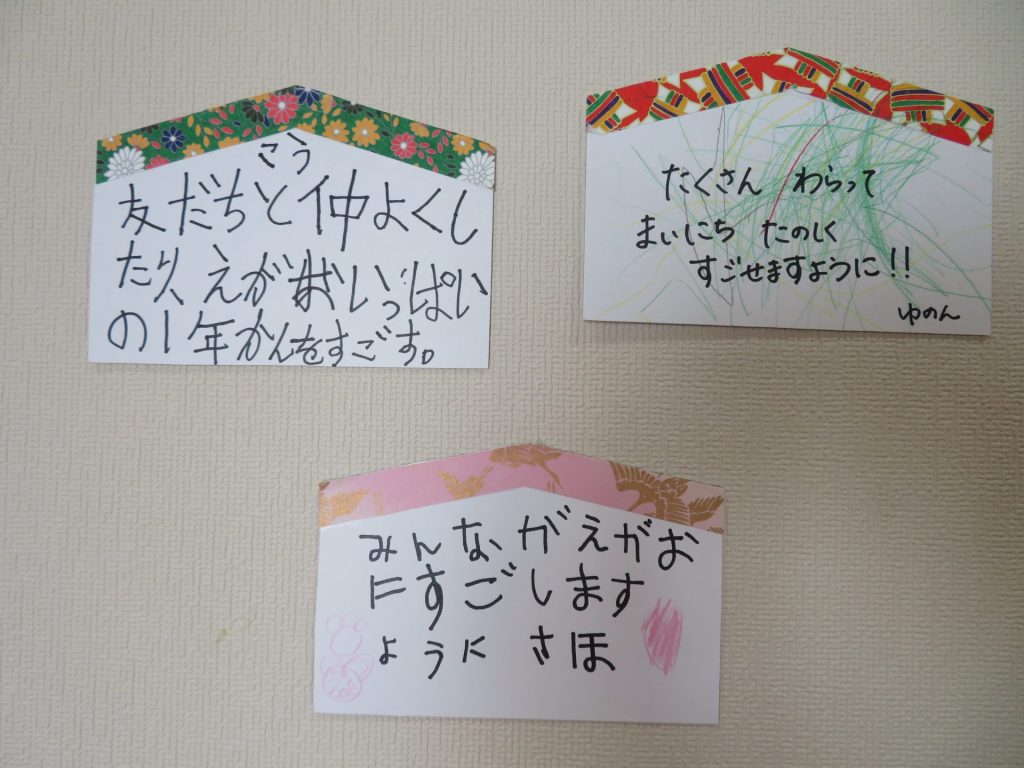 こう
友だちと仲よくし
たり、えがおいっぱい
の1年かんをすごす。
たくさん わらって
まいにち たのしく
すごせますように!!
ゆのん
みんながえがお
にすごします
ように さほ